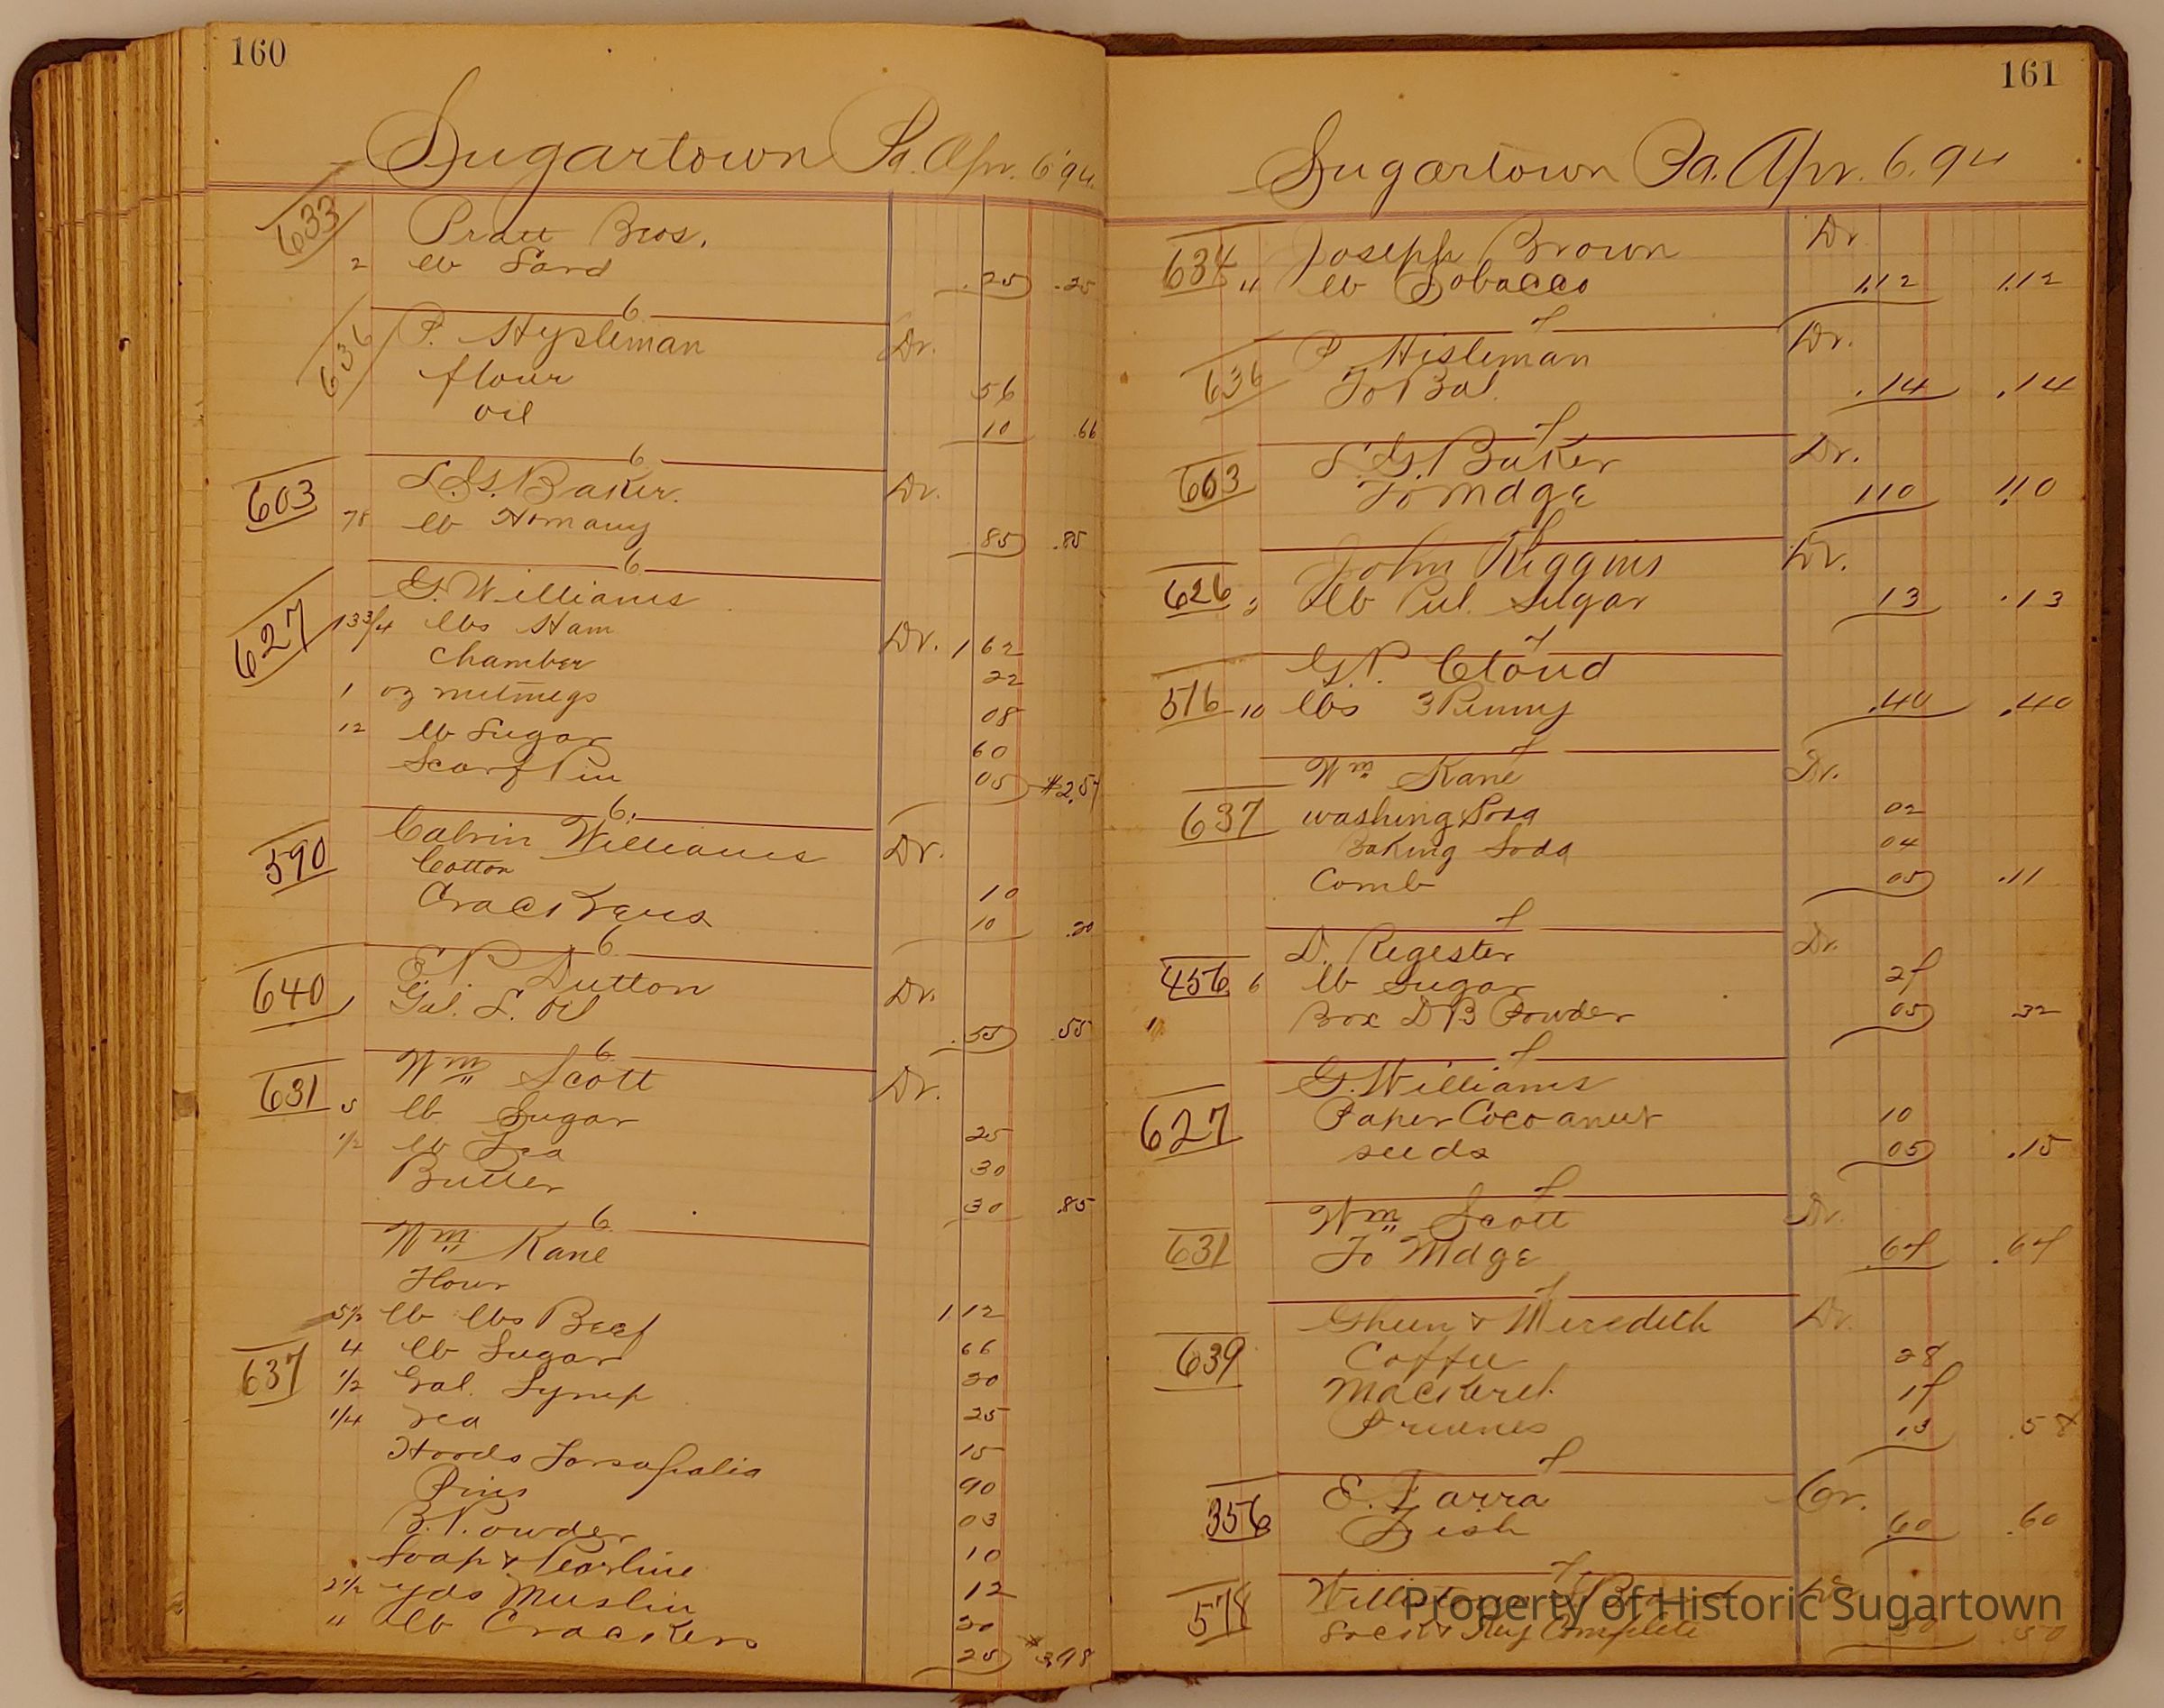 160
Sugartown Pa. Apr. 6 '94.
633 Pratt Bros.
2 lb Lard .25 .25
6
636 P. Hysleman Dr.
flour 56
oil 10 .66
6
603 S.G. Baker. Dr.
78 lb Homany .85 .85
6
627 G. Williams
13 3/4 lbs Ham Dr. 1 62
Chamber 22
1 oz nutmegs 08
12 lb Sugar 60
Scarf Pin 05 $2.57
6
590 Calvin Williams Dr.
Cotton 10
Crackers 10 .20
6
640 E. P. Dutton Dr.
1 Gal. L. Oil .55 .55
6
631 Wm Scott Dr.
5 lb Sugar 25
1/2 lb Tea 30
Butter 30 .85
6
Wm Kane
Flour 1,12
5 1/2 lb lbs Beef 66
637 4 lb Sugar 20
1/2 Gal. Syrup 25
1/4 Tea 15
Hoods Sarsapalia 90
Pins 03
B. Powder 10
Soap & Pearline 12
2 1/2 yds Muslin 20
" lb Crackers 25 $3.98
161
Sugartown Pa. Apr. 6. 94
634 Joseph Brown Dr
4 lb Tobacco 1.12 1.12
7
636 P Hisleman Dr.
To Bal. .14 .14
7
603 S.G. Baker Dr.
To Mdge 1 10 1.10
7
626 John Riggins Dr.
2 lb Pul. Sugar 13 .13
7
G.P. Cloud
516 10 lbs 3 Penny .40 .40
7
Wm Kane Dr.
637 washing Soda 02
Baking Soda 04
Comb 05 .11
7
D. Regester Dr.
456 6 lb Sugar 27
1/2 Box D B Powder 05 32
7
G. Williams
627 Paper Cocoanut 10
seeds 05 .15
7
Wm Scott Dr.
631 To Mdge .67 .67
7
Gheen & Meredith Dr.
639 Coffee 28
Mackerel. 17
Prunes 13 .58
7
E. Farra Cr.
356 Fish .60 .60
7
578 Dr
Lock & Key Complete 50 .50
Property of Historic Sugartown